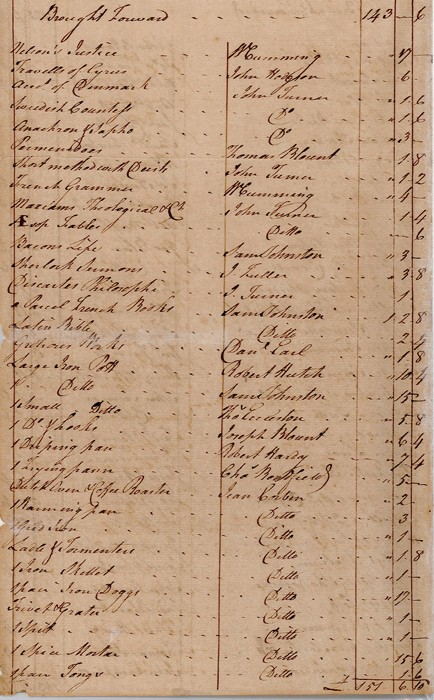 Brought Forward 143 - 6
Nelson's Justice Wm Cumming " 17 -
Travells of Cyrus John Hodgson " 6 -
Acct of Denmark John Turner " 1 6
Swedish Countess Do " 1 6
Anachron & Sapho Do " 3 -
Thomas Blount " 1 8
Short method with Deists John Turner " 1 2
French Grammer Wm Cumming " 4 -
Maxiams Theological &ca John Turner " 1 4
Æsop Fables Ditto " - 6
Bacons Life Saml Johnston " 3 8
Sherlock Sermons J. Luller " 1
Discartes Philosophi J. Turner " 1
a Parcel French Books Saml Johnston 1 2 8
Latin Bible Ditto " 2 4
Works Danl Earl " 1 8
Large Iron Pott Robert Hutch " 10 4
1 Do Ditto Saml Johnston " 15 -
1 Small Ditto Thos " 5 8
1 Do & hooks Joseph Blount " 6 4
1 Driping pan Robert Hardy " 7 4
1 Frying pann Chas " 5 -
Dutch Oven & Coffee Roaster Jean Corbin " 2 -
1 Warming pan Ditto " 3
Iron Ditto " 1 -
Ladle & Tormenters Ditto " 1 8
1 Iron Skillet Ditto " 1 -
1 pair Iron Doggs Ditto " 17 -
Trivet & Grater Ditto " 1 -
1 Spit Ditto " 1 -
1 Spice Mortar Ditto " 15 6
1 pair Tongs Ditto " 1 6
151 6 10